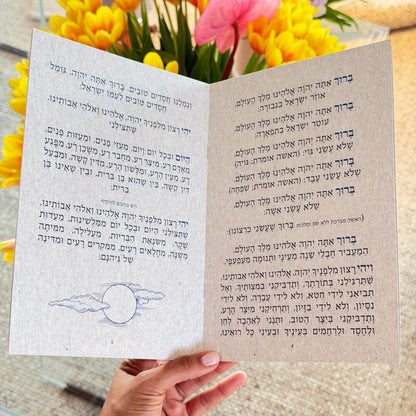 בָּרוּךְ אַתָּה יְהוָה אֱלֹהֵינוּ מֶלֶךְ הָעוֹלָם,
אוֹזֵר יִשְׂרָאֵל בִּגְבוּרָה.
בָּרוּךְ אַתָּה יְהוָה אֱלֹהֵינוּ מֶלֶךְ הָעוֹלָם,
עוֹטֵר יִשְׂרָאֵל בְּתִפְאָרָה.
בָּרוּךְ אַתָּה יְהוָה אֱלֹהֵינוּ מֶלֶךְ הָעוֹלָם,
שֶׁלֹּא עָשַׂנִי גּוֹי. (האשה אומרת: גּוֹיָה)
בָּרוּךְ אַתָּה יְהוָה אֱלֹהֵינוּ מֶלֶךְ הָעוֹלָם,
שֶׁלֹּא עָשַׂנִי עָבֶד. (האשה אומרת: שִׁפְחָה)
בָּרוּךְ אַתָּה יְהוָה אֱלֹהֵינוּ מֶלֶךְ הָעוֹלָם,
שֶׁלֹּא עָשַׂנִי אִשָּׁה.
(האשה מברכת ללא שם ומלכות: בָּרוּךְ שֶׁעָשַׂנִי כִּרְצוֹנוֹ):
בָּרוּךְ אַתָּה יְהוָה אֱלֹהֵינוּ מֶלֶךְ הָעוֹלָם,
הַמַּעֲבִיר חֶבְלֵי שֵׁנָה מֵעֵינַי וּתְנוּמָה מֵעַפְעַפָּי.
וִיהִי רָצוֹן מִלְּפָנֶיךָ יְהוָה, אֱלֹהֵינוּ וֵאלֹהֵי אֲבוֹתֵינוּ,
שֶׁתַּרְגִּילֵנִי בְּתוֹרָתֶךָ, וְתַדְבִּיקֵנִי בְּמִצְוֹתֶיךָ, וְאַל
תְּבִיאֵנִי לִידֵי חֵטְא, וְלֹא לִידֵי עֲבֵרָה, וְלֹא לִידֵי
נִסָּיוֹן, וְלֹא לִידֵי בִזָּיוֹן, וְתַרְחִיקֵנִי מִיֵּצֶר הָרָע,
וְתַדְבִּיקֵנִי בְּיֵצֶר הַטּוֹב, וּתְנֵנִי לְאַהֲבָה לְחֵן
וּלְחֶסֶד וּלְרַחֲמִים בְּעֵינֶיךָ וּבְעֵינֵי כָל רוֹאֵינוּ,
וְגָמְלֵנוּ חֲסָדִים טוֹבִים. בָּרוּךְ אַתָּה יְהוָה, גּוֹמֵל
חֲסָדִים טוֹבִים לְעַמּוֹ יִשְׂרָאֵל.
יְהִי רָצוֹן מִלְּפָנֶיךָ יְהוָה, אֱלֹהֵינוּ וֵאלֹהֵי אֲבוֹתֵינוּ,
שֶׁתַּצִּילֵנִי
הַיּוֹם וּבְכָל יוֹם וָיוֹם, מֵעַזֵּי פָנִים, וּמֵעַזּוּת פָּנִים,
מֵאָדָם רָע, מִיֵּצֶר רָע, מֵחָבֵר רָע, מִשָּׁכֵן רָע, מִפֶּגַע
רָע, מֵעַיִן הָרָע, וּמִלָּשׁוֹן הָרָע, מִדִּין קָשֶׁה, וּמִבַּעַל
דִּין קָשֶׁה, בֵּין שֶׁהוּא בֶן בְּרִית, וּבֵין שֶׁאֵינוֹ בֶן
בְּרִית.
יְהִי רָצוֹן מִלְּפָנֶיךָ יְהוָה אֱלֹהֵינוּ וֵאלֹהֵי אֲבוֹתֵינוּ,
שֶׁתַּצִּילֵנִי הַיּוֹם וּבְכָל יוֹם מִמַּלְשִׁינוּת. מֵעֵדוּת
שֶׁקֶר. מִשִּׂנְאַת הַבְּרִיּוֹת. מֵעֲלִילָה. מִמִּיתָה
מְשֻׁנָּה. מֵחֳלָאִים רָעִים. מִמִּקְרִים רָעִים וּמִדִּינָהּ
שֶׁל גֵּיהִנֹּם.